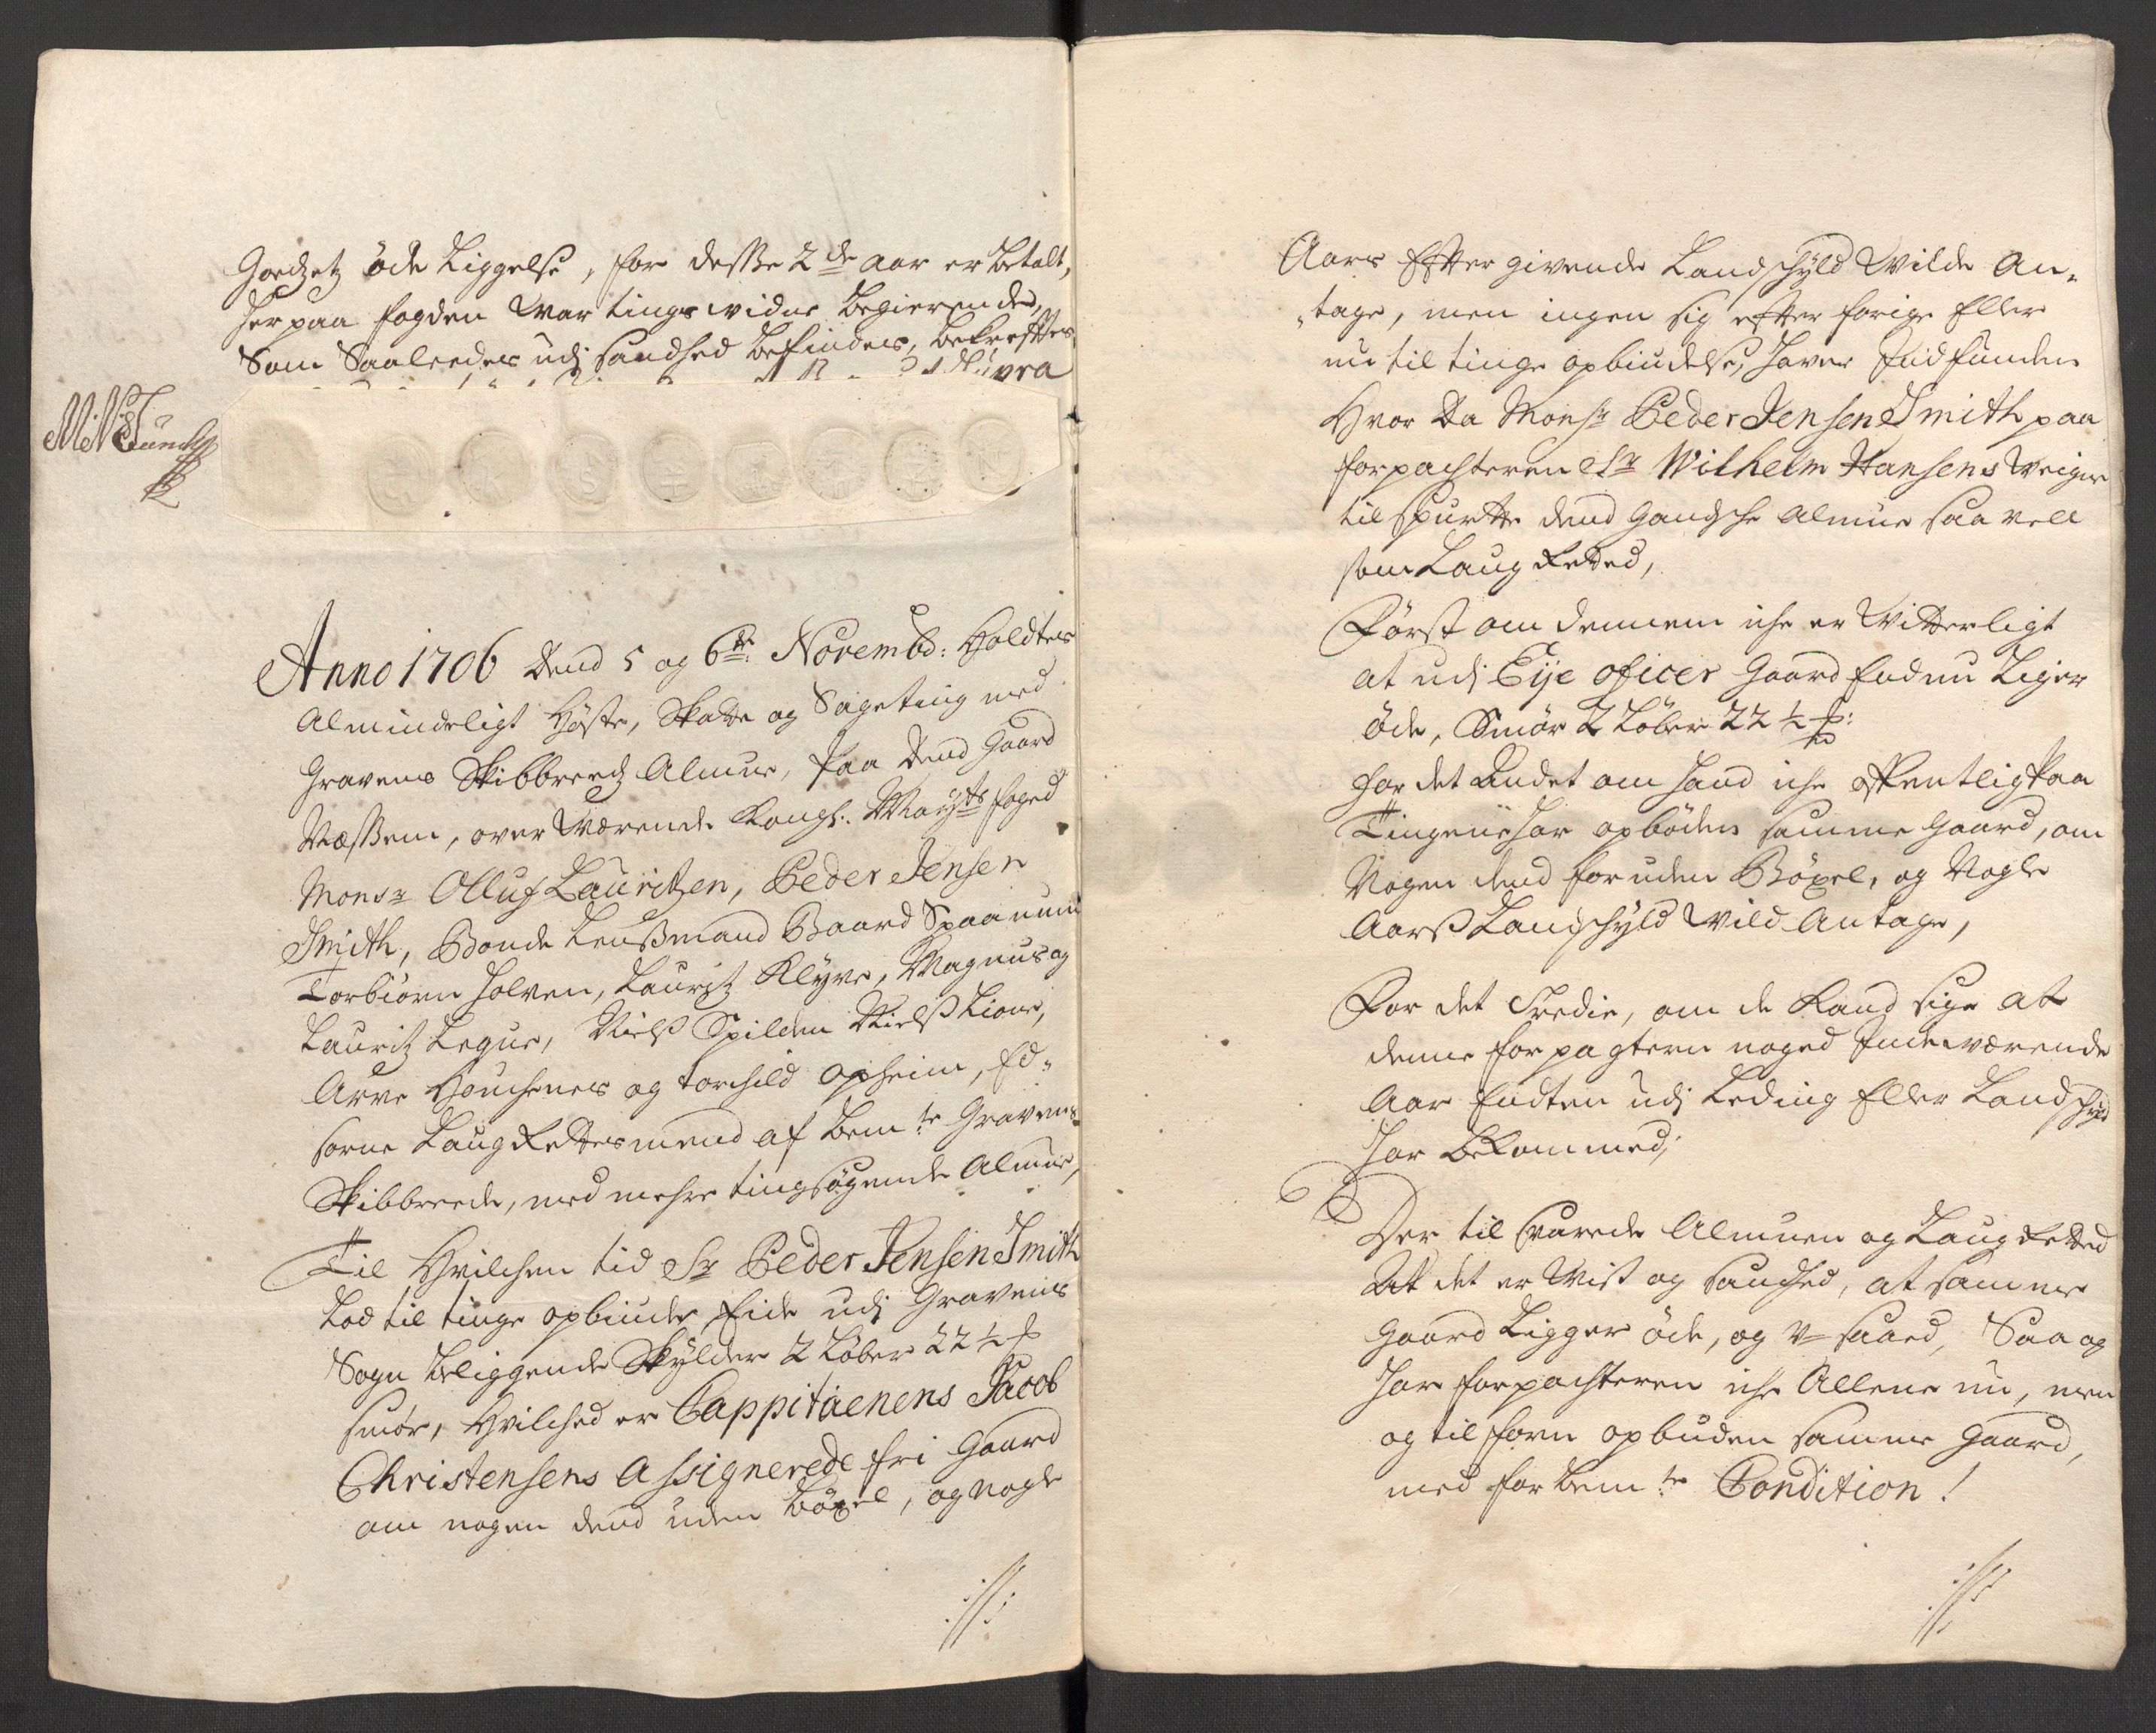 Goedzetz öde Liggelse, for desse 2de aar er betalt,
Herpaa fogden war tingsvidne begierendes,
Som Saaleedes udj Sandhed befindes, bekreftes
Anno 1706 dend 5 og 6te Novembr: Holdtes
Almindeligt Höste, Skatte og Sageting med
Gravens Skibbreedz Almue, paa dend Gaard
Næssem, overwærende Kongl: Mayts foged
Monsr Olluf Lauritzen, Peder Jensen
Smith, Bonde Lensmand Baard Spaanum
Torbiörn Holven, Lauritz Klyve, Magnus og
Lauritz Legue, Niels Spilden Niels Lione,
Arve Houchenes og Torchild Opheim, Ed-
sorne Laugrettesmend af bemte Gravens
Skibbreede, med mehre tingsögende Almue,
Til Hvilchen tid Sr Peder Jensen Smith
Lod til tinge opbiude Eide udj Gravens
Sogn beliggende Skylder 2 Löber 22 1/2 ℔
Smör, Hvilched er Cappitaenens Jacob
Christensens Assignerede fri Gaard
om nogen dend uden böxel, og nogle
Aars Efftergivende Landschyld wilde An-
tage, men ingen sig efter forige Eller
nu til tinge opbiudelse, haver Indfunden
Hvor da Monsr Peder Jensen Smith paa
forpachteren Sr Wilhelm Hansens weigne
tilspurte dend gandsche Almue saavell
som Laugretted,
Först om dennem iche er witterligt
at udj Eije oficer Gaard Endnu Liger
öde, Smör 2 Löber 22 1/2 ℔:
For det Andet om hand iche offentlig paa
Tingene har opböden samme Gaard, om
Nogen dend foruden Böxel, og Nogle
Aars Landschyld wild Antage,
For det Tredie, om de Kand sige at
denne forpagtern noged Indeværende
Aar Endten udj Leding Eller Landschyld
har bekommed,
Der til svarede Almuen og Laugretted
At det er wist og Sandhed, at samme
Gaard Ligger öde, og u-saaed, Saa og
har forpachteren iche Allene nu, men
og tilforn opbuden samme Gaard,
med forbemte Condition!